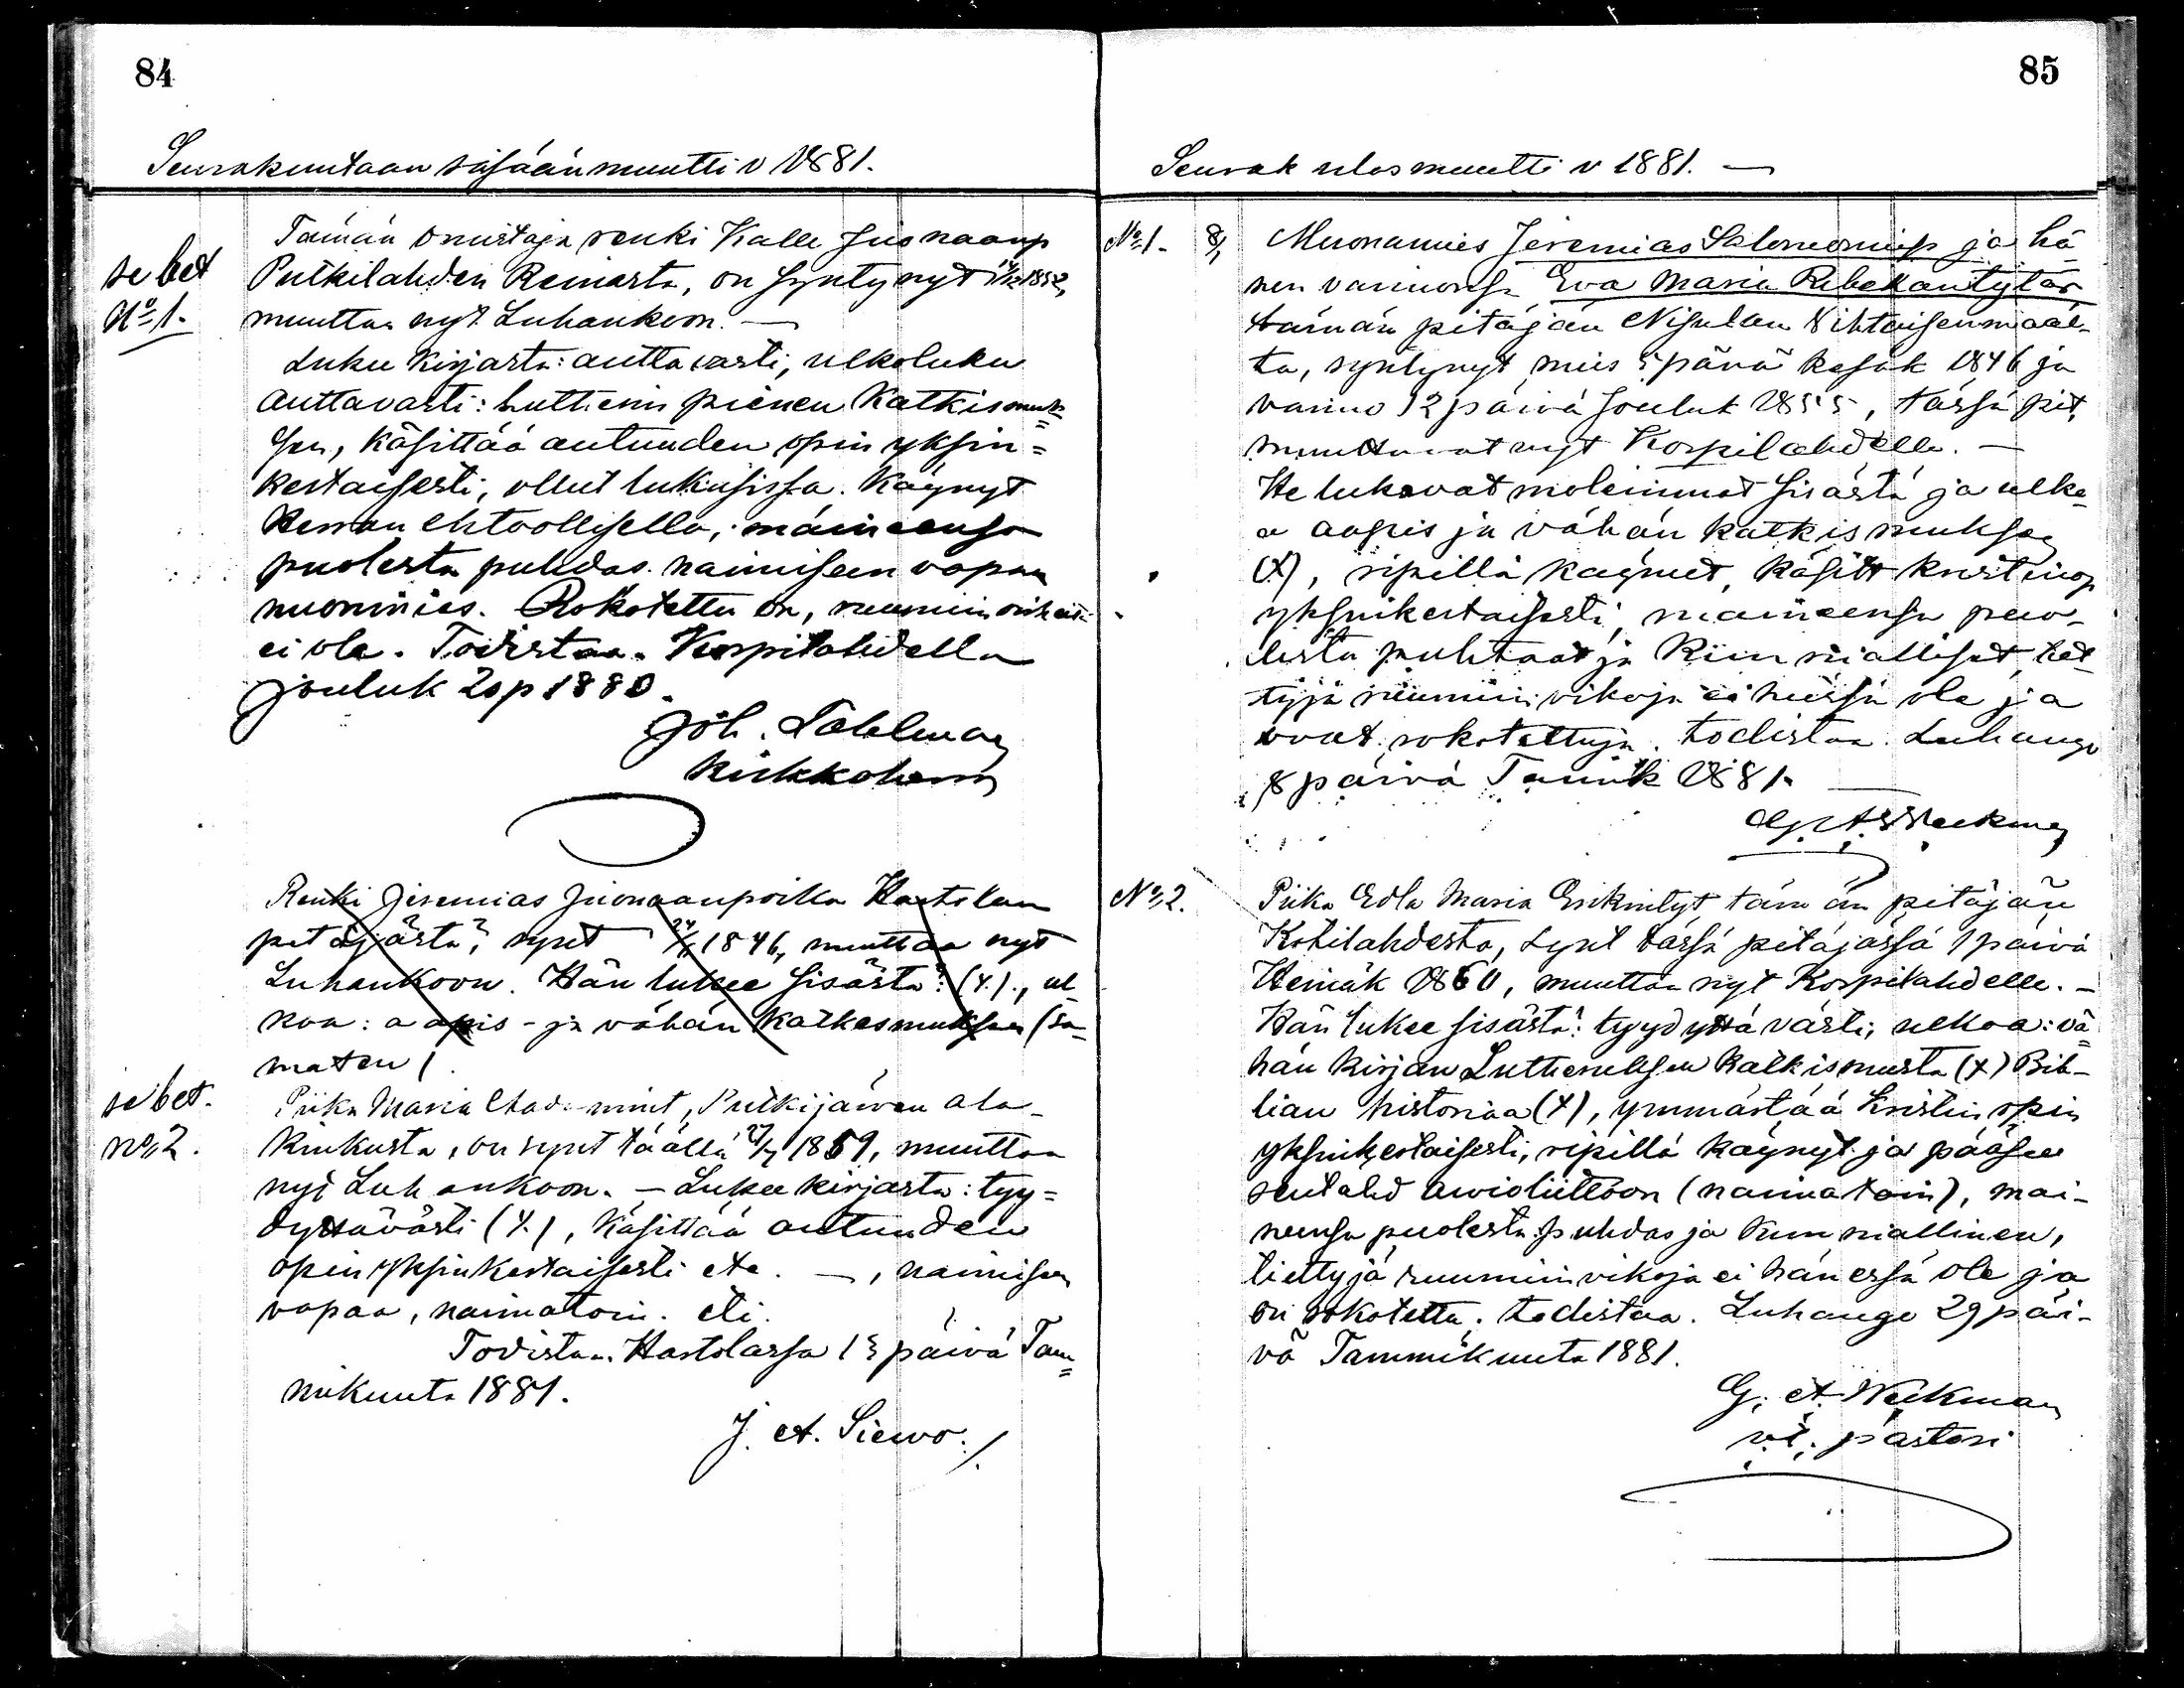 84
Seurakuntaan sisään muutti v 1881.
Tämän omistaja renki Kalle Juonaanp
se bet Putkilahden Reinasta, on syntynyt 1852,
No 1. muuttaa nyt Luhankoon. —
Lukee kirjasta: auttavasti, ulkoluku
auttavasti: Lutterin pienen Katkismuk=
sen, käsittää autuuden opin yksin=
kertaisesti, ollut lukusissa. Käynyt
Herran ehtoollisella, maineensa
puolesta puhdas. naimiseen vapaa
nuorimies. Rokotettu on, ruumiin
ei ole. Todistaa. Korpilahdella
jouluk 20 p 1880.
Joh. Dahlman
Kirkkoherra
Renki Jeremias Juonaanpoika Hartolan
pitäjästä, synt 1846, muuttaa nyt
Luhankoon. Hän lukee sisästä: (x)., ul-
koa: aapis- ja vähän katkesmuksen (sa-
maten)
se bet. Piika Maria, Putkijärven ala-
No 2. on synt täällä 27/7 1859, muuttaa
nyt Luhankoon. — Lukee kirjasta: tyy=
dyttävästi (x.), käsittää autuuden
opin yksinkertaisesti etc. —, naimiseen
vapaa, naimatoin. etc.
Todistaa. Hartolassa 15 päivä Tam=
mikuuta 1881.
J. A. Siewo./.
85
Seurak ulos muutti v 1881. —
No 1. Muonamies Jeremias Salomoninp ja hä-
nen vaimonsa Eva Maria Rebekantytär
tämän pitäjän Nisulan
ta, syntynyt mies 5 päivä kesäk 1846 ja
vaimo 12 päivä Jouluk 1855, tässä pit,
muuttavat nyt Korpilahdelle. —
He lukevat molemmat sisästä ja ulko-
a aapis ja vähän katkismuksen
(x), ripillä käyneet, käsitt kristinop
yksinkertaisesti, maineensa puo-
lesta puhtaat ja kunnialliset, tiet-
tyjä ruumiin vikoja ei heissä ole ja
ovat rokotettuja. todistaa. Luhango
8 päivä Tamik 1881. —
G. A. Weckman
No 2. Piika Edla Maria Erikintyt, tämän pitäjän
Kotilahdesta, synt tässä pitäjässä 1 päivä
Heinäk 1860, muuttaa nyt Korpilahdelle. —
Hän lukee sisästä: tyydyttävästi, ulkoa: vä-
hän kirjan Lutheruksen katkismusta (x) Bib-
lian historiaa (x), ymmärtää kristin opin
yksinkertaisesti, ripillä käynyt ja pääsee
sentähd awioliittoon (naimatoin), mai-
neensa puolesta puhdas ja kunniallinen,
tiettyjä ruumiin vikoja ei hänessä ole ja
on rokotettu. todistaa. Luhango 29 päi-
vä Tammikuuta 1881.
G. A. Weckman
vt. pastori